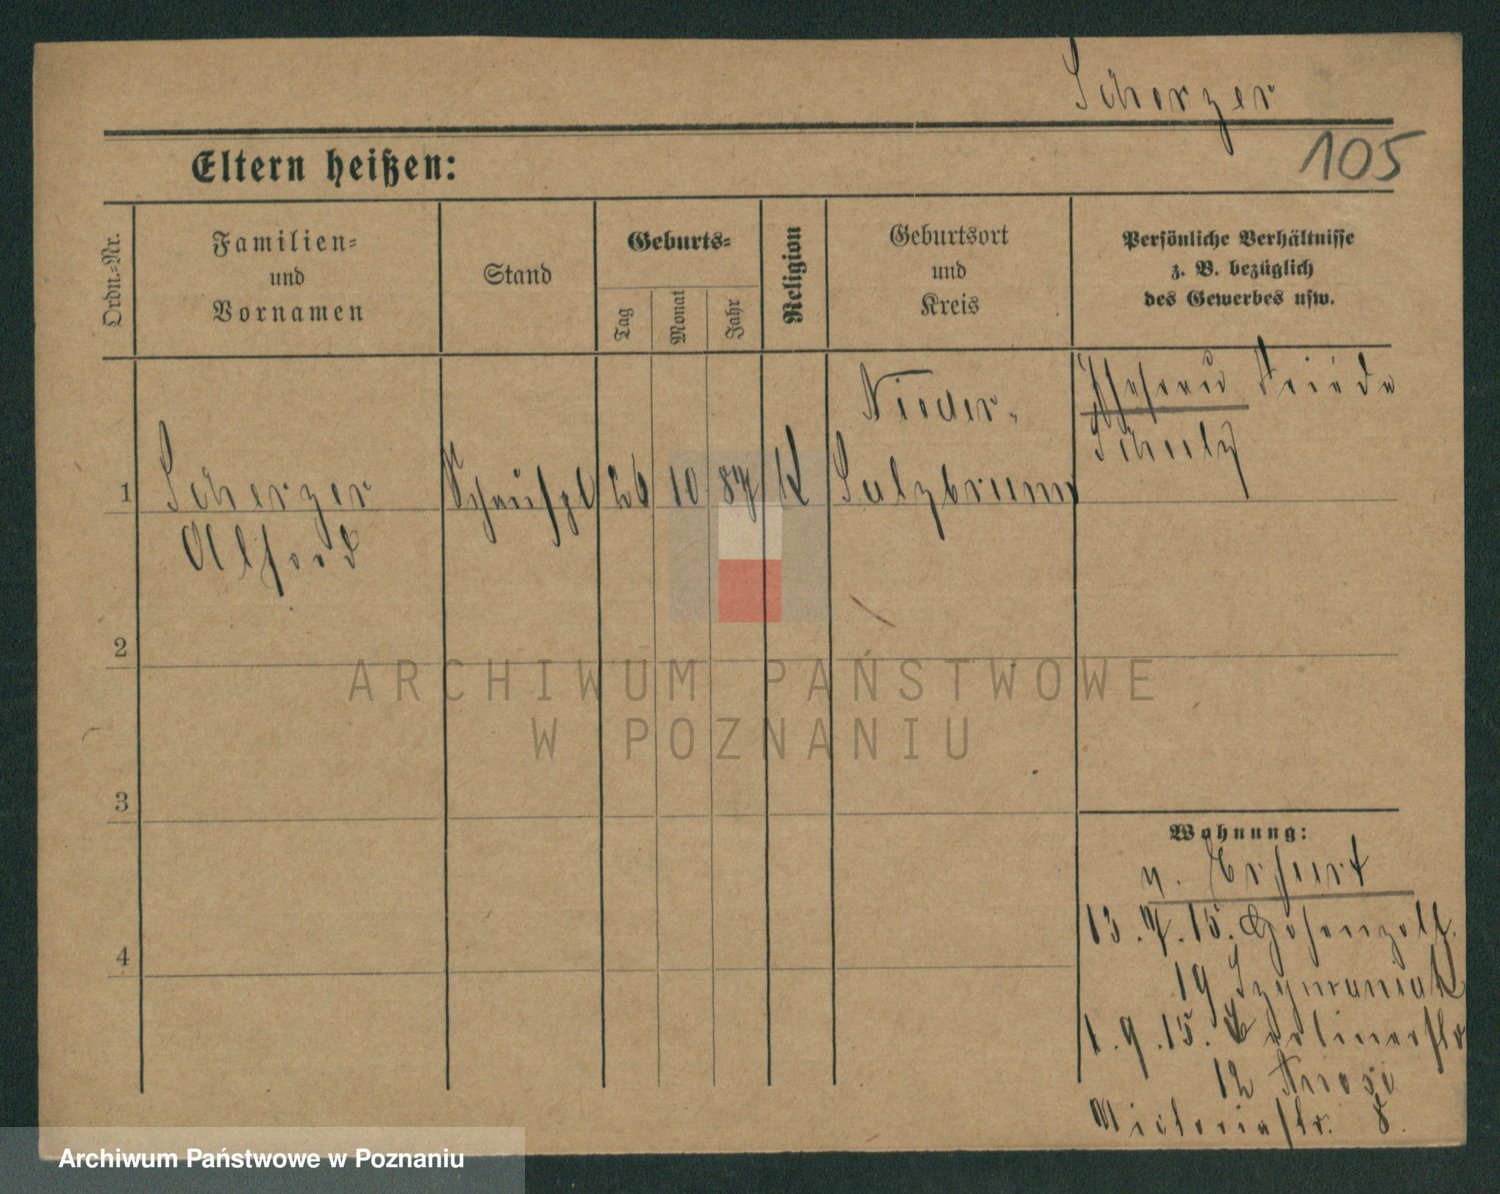 Scherzer
105
Eltern heißen:
Ordn.-Nr.
Familien-
und
Vornamen
Stand
Geburts-
Tag
Monat
Jahr
Religion
Geburtsort
und
Kreis
Persönliche Verhältnisse
z. B. bezüglich
des Gewerbes usw.
1
Scherzer
Alfred
Schauspl
26
10
87
K
Nieder-
Salzbrunn
Ehefrau Friede
Schulz
2
3
4
Wohnung:
n. Erfurt
13.7.15. Hohenzoll.
19 Szymaniak
1.9.15. Berlinerstr
12
Victoriastr. 8.
ARCHIWUM PAŃSTWOWE
W POZNANIU
Archiwum Państwowe w Poznaniu